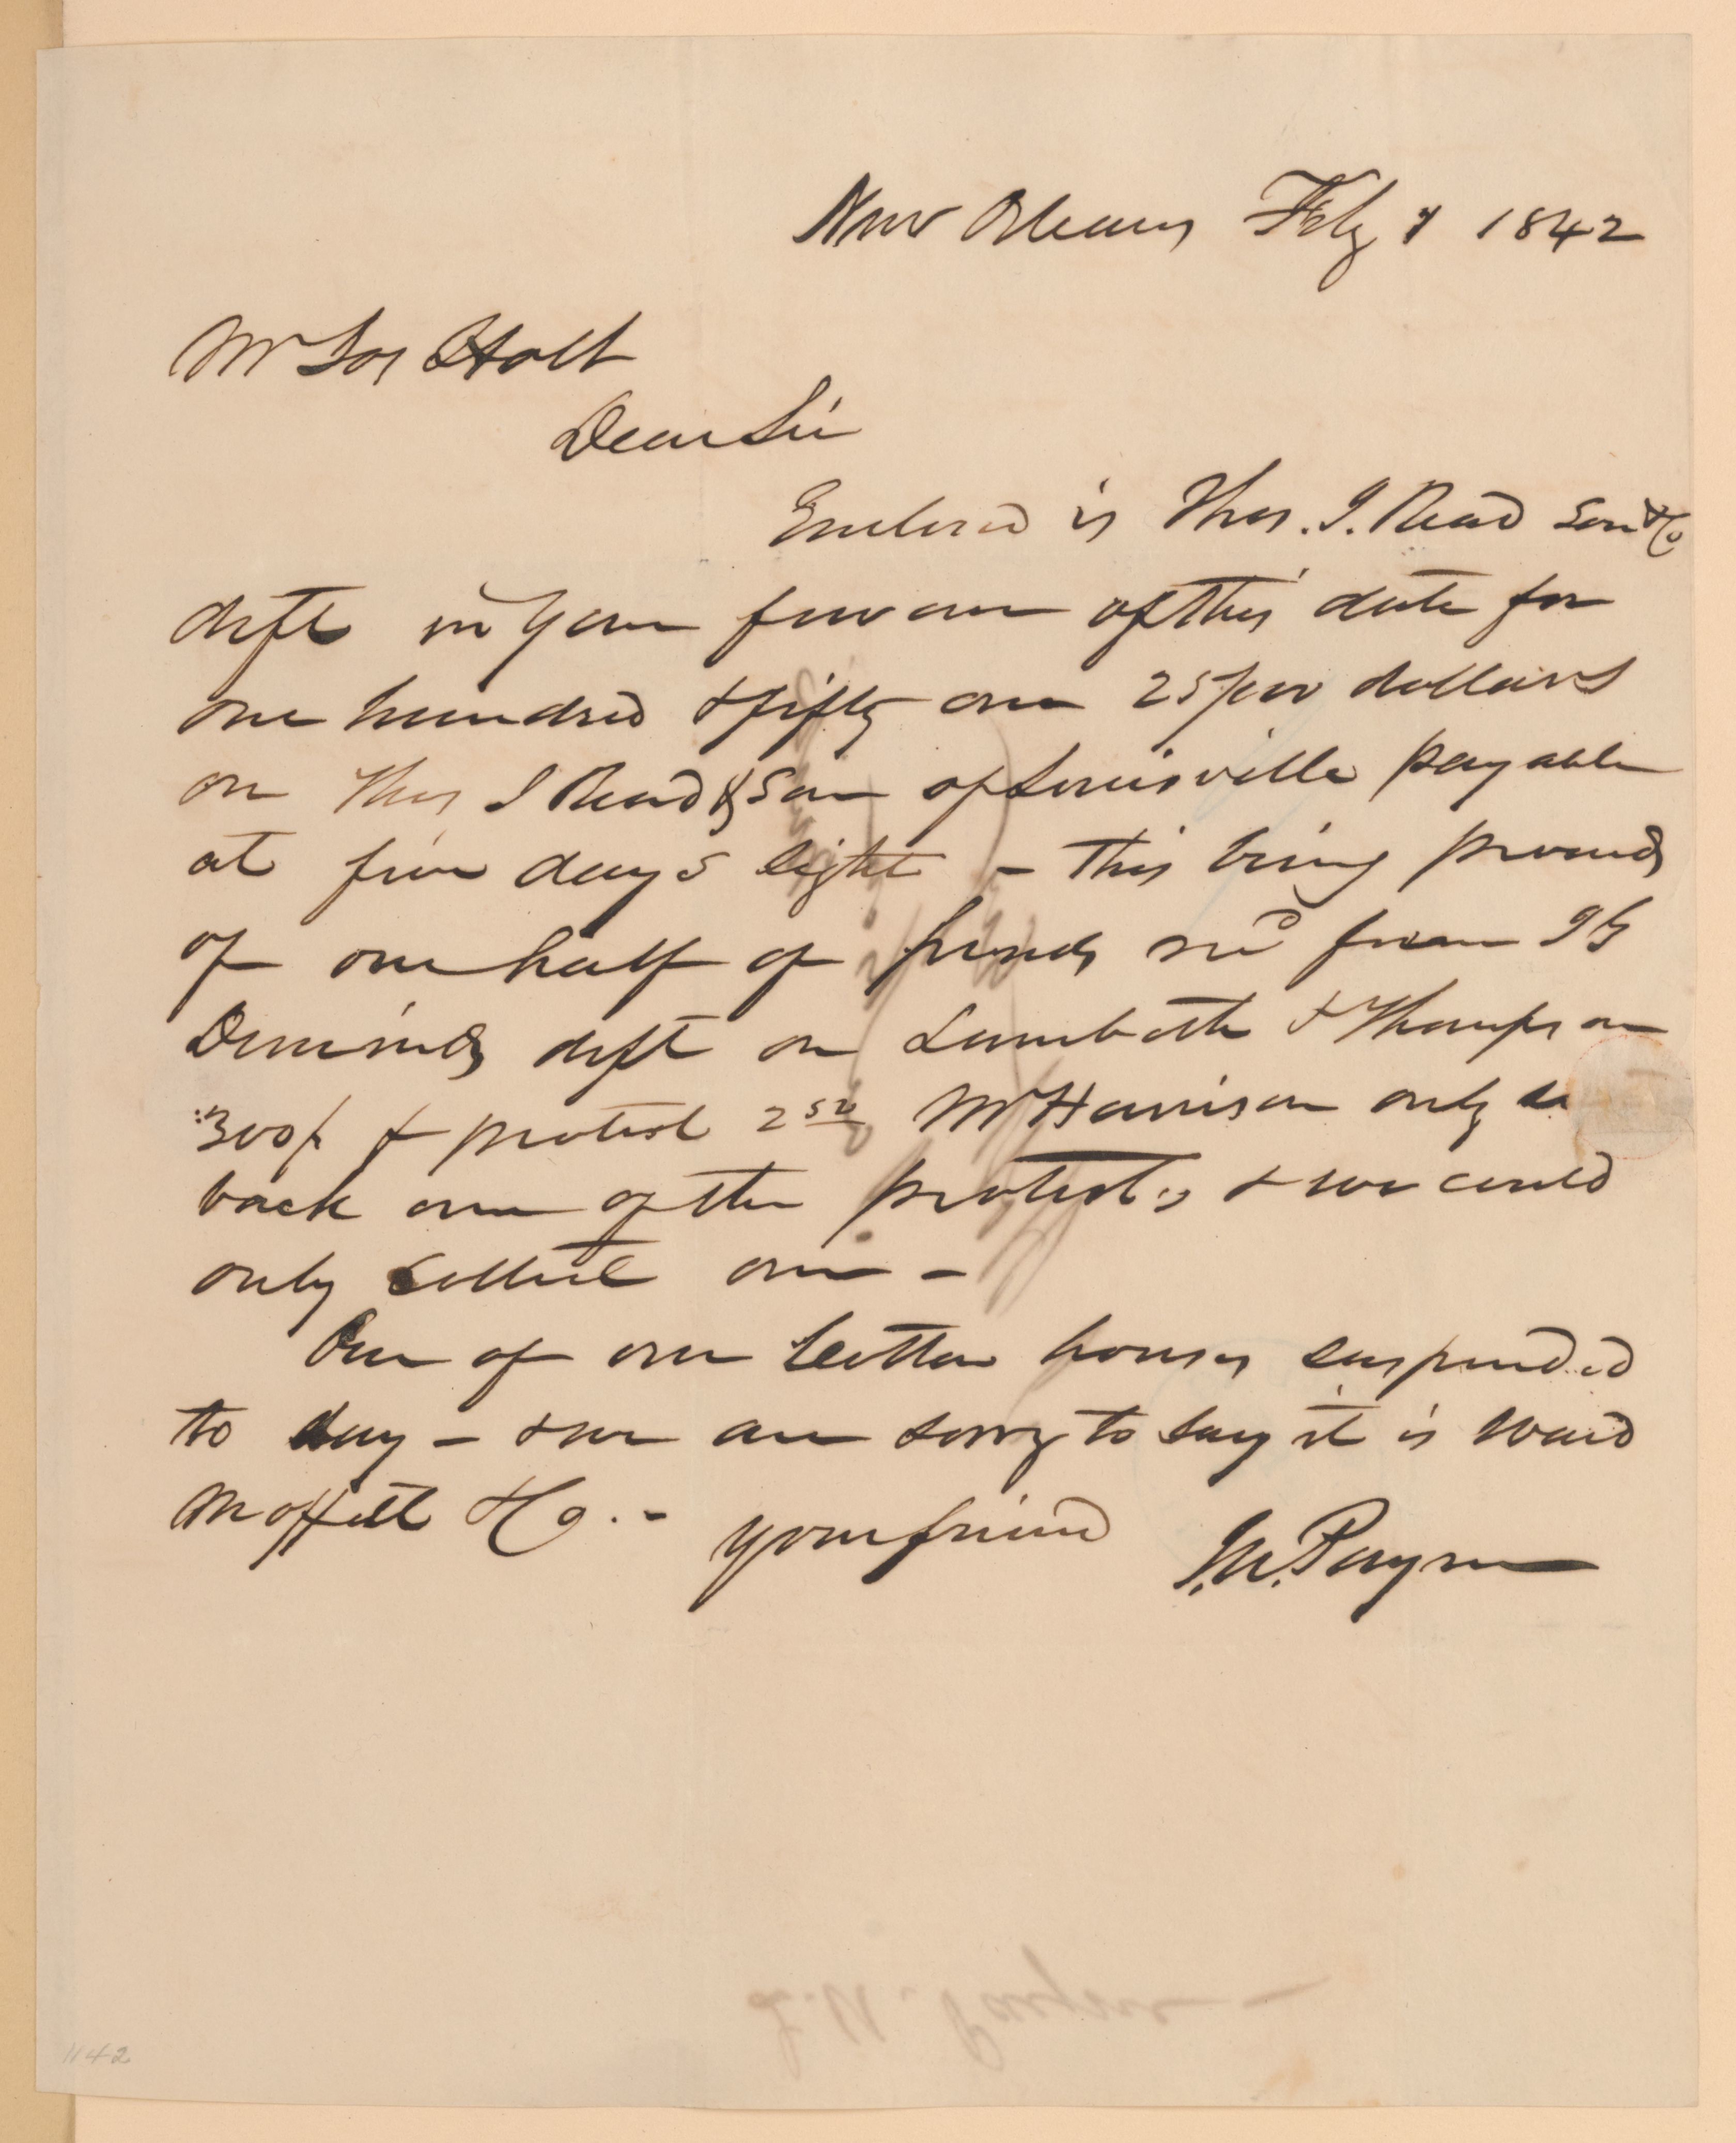 New Orleans Feby 1842
Mr Jos Holt
Dear Sir
Enclosed is Thos. J. Read Son & Co
dft in your favour of this date for
one hundred & fifty one 25/100 dollars
on Thos J Read & Son of Louisville payable
at five days sight - this being proceeds
of one half of funds recd from
dft on Lambeth & Thompson
300$ & protest 250 Mr Harrison only
back one of the protests & we could
only collect one -
One of our better houses suspended
to day - & we are sorry to say it is Ward
Moffett & Co. -
your friend
J.U. Payne
J. U. Payne
1142